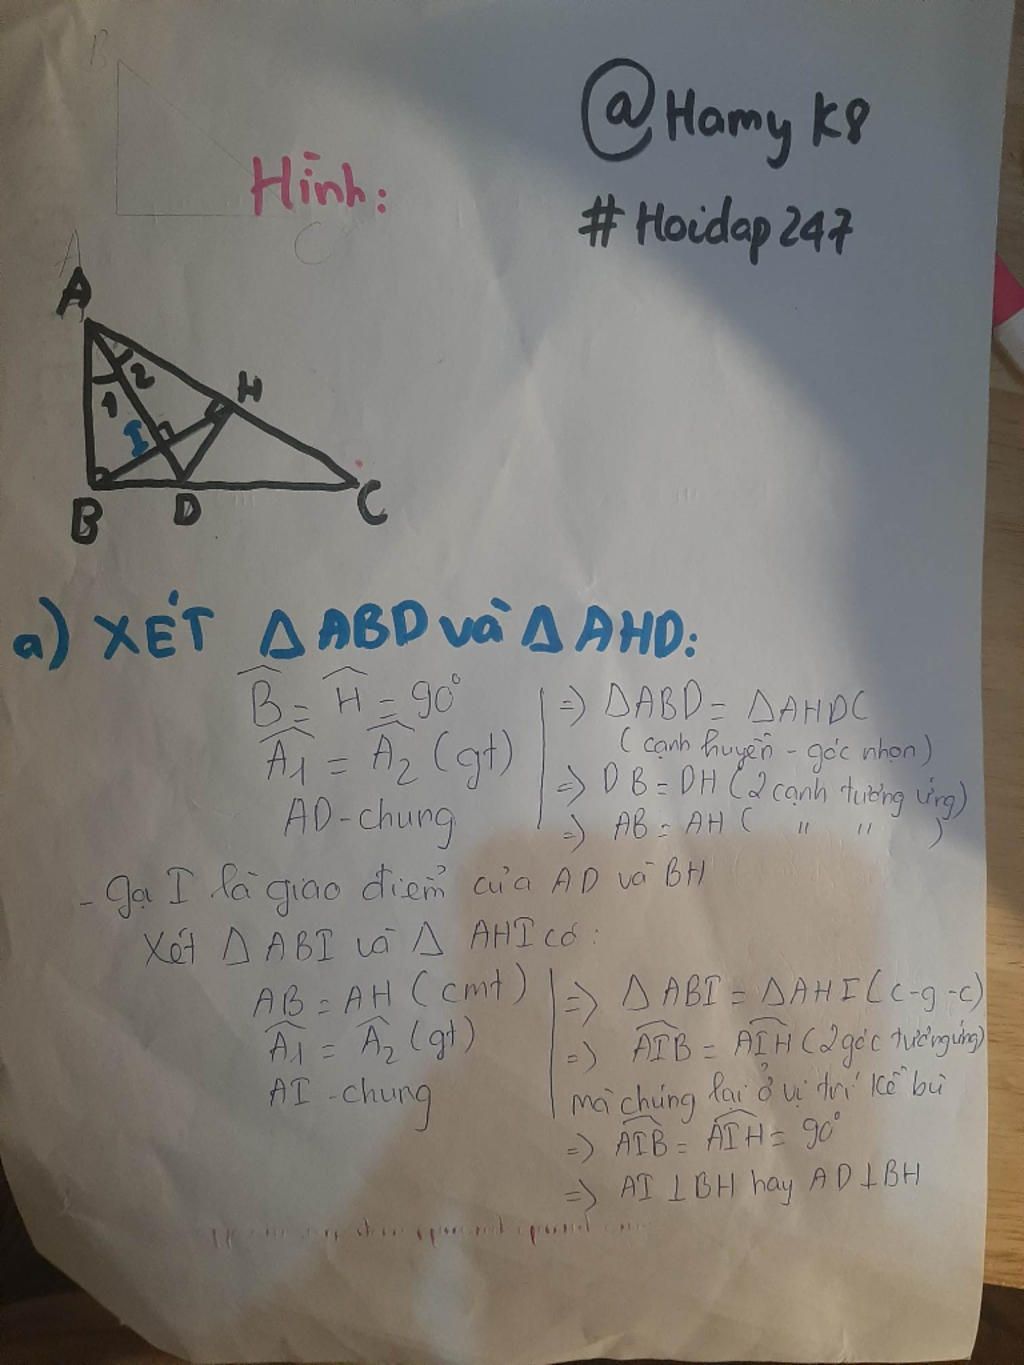 @Hamy K8
#Hoidap247
B
Hình:
C
A
A
2
H
1
I
B
D
C
a) XÉT Δ ABD và Δ AHD:
B̂ = Ĥ = 90°
Â1 = Â2 (gt)
AD - chung
=> ΔABD = ΔAHD (
(cạnh huyền - góc nhọn)
=> DB = DH (2 cạnh tương ứng)
=> AB = AH ( " " )
- Gọi I là giao điểm của AD và BH
Xét Δ ABI và Δ AHI có:
AB = AH (cmt)
Â1 = Â2 (gt)
AI - chung
=> Δ ABI = ΔAHI (c-g-c)
=> AÎB = AÎH (2 góc tương ứng)
mà chúng lại ở vị trí kề bù
=> AÎB = AÎH = 90°
=> AI ⊥ BH hay AD ⊥ BH